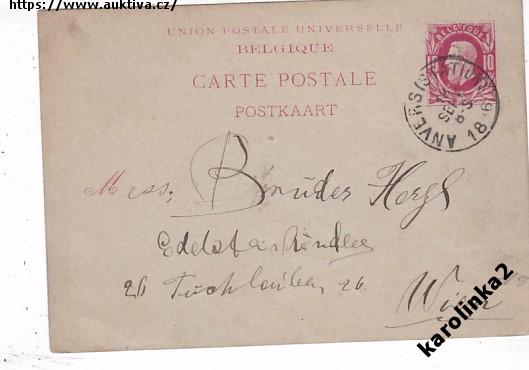 https://www.auktiva.cz/
UNION POSTALE UNIVERSELLE
BELGIQUE
BELGIQUE
10
CARTE POSTALE
POSTKAART
ANVERS (STATION)
SE
1886
Mess. Brüder Hergl
Edelsteinhändler
26 Tuchlauben 26.
Wien
karolinka2